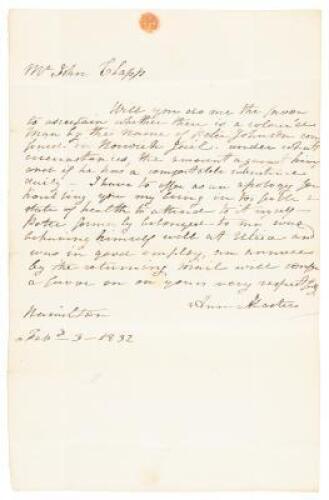 Mr John Clapp
Will you do me the favor
to ascertain whether there is a colour'd
man by the name of Peter Johnson con
fined in Norwich Jail. under what
circumstances, the amount against him
and if he has a comfortable subsistence
daily - I have to offer as an apology for
troubling you my being in too feeble a
state of health to attend to it myself
Peter formerly belonged to me was
behaving himself well at Utica and
was in good employ, an answer
by the returning mail will confer
a favor on yours very respectfully
Ann
Hamilton
Feby 3 - 1832